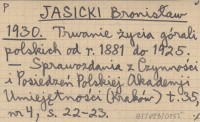 P JASICKI Bronisław
1930. Trwanie życia górali
polskich od r. 1881 do 1925.
— Sprawozdania z Czynności
i Posiedzeń Polskiej Akademji
Umiejętności (Kraków) t. 35,
nr 4, s. 22-23.